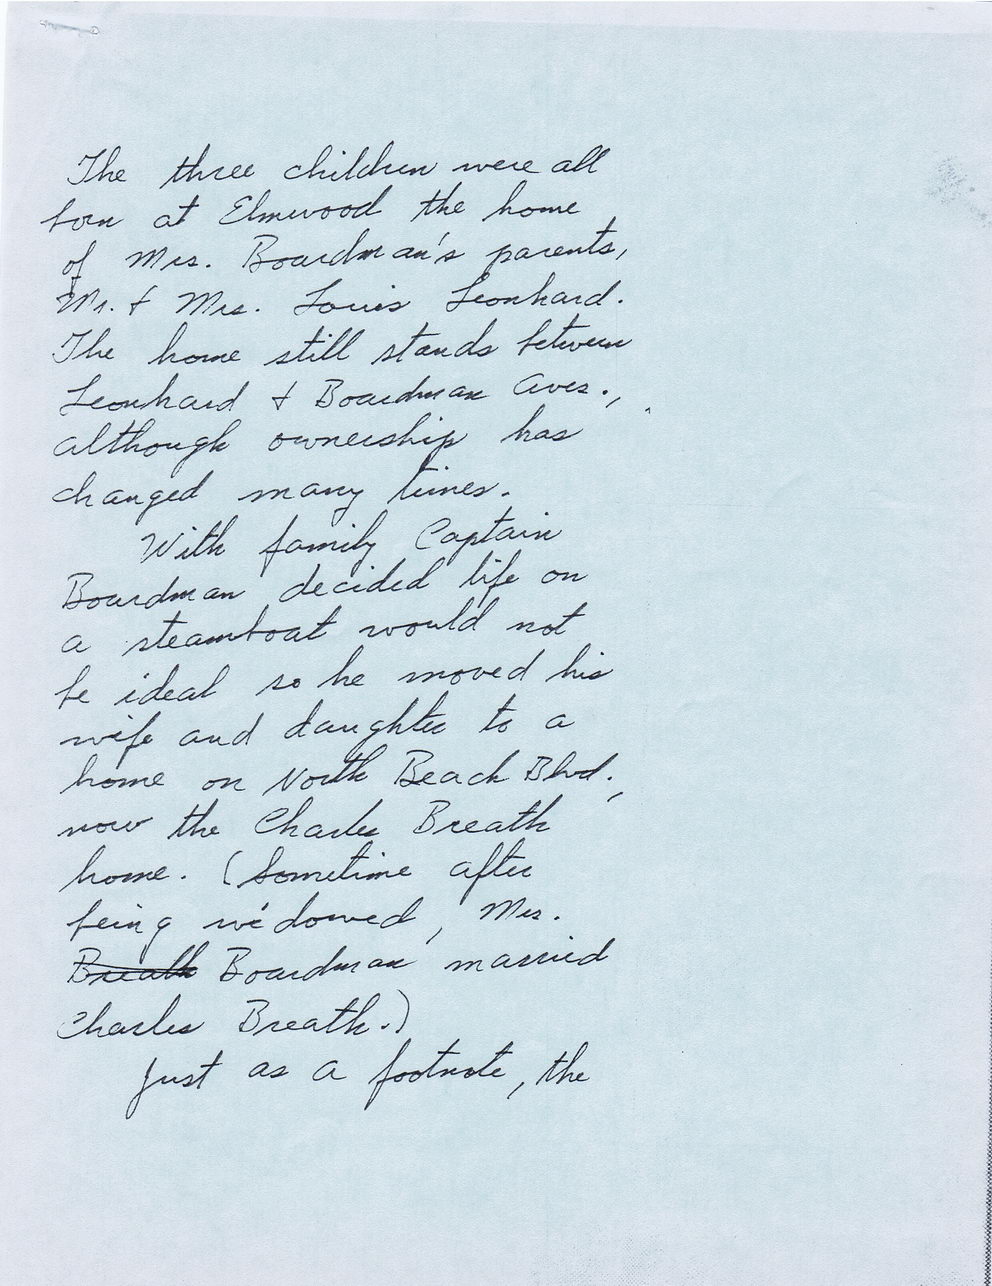 The three children were all
born at Elmwood the home
of Mrs. Boardman's parents,
Mr. & Mrs. Louis Leonhard.
The home still stands between
Leonhard & Boardman Aves.,
although ownership has
changed many times.
With family Captain
Boardman decided life on
a steamboat would not
be ideal so he moved his
wife and daughter to a
home on North Beach Blvd.,
now the Charles Breath
home. (Sometime after
being widowed, Mrs.
Breath Boardman married
Charles Breath.)
Just as a footnote, the